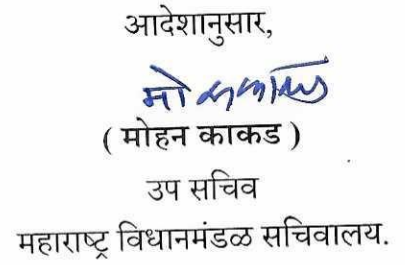 आदेशानुसार,
( मोहन काकड )
उप सचिव
महाराष्ट्र विधानमंडळ सचिवालय.